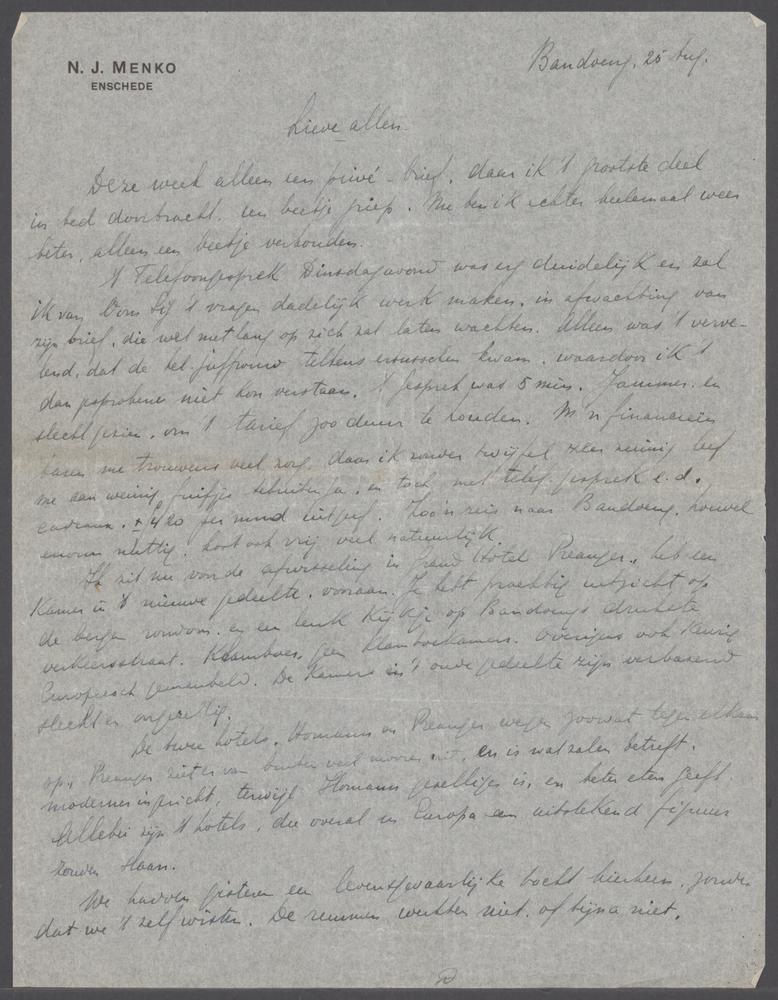 N. J. MENKO
ENSCHEDE
Bandoeng, 25 Aug.
Lieve allen.
Deze week alleen een privé-brief, daar ik 't grootste deel
in bed doorbracht. Een beetje griep. Nu ben ik echter heelemaal weer
beter, alleen een beetje verkouden.
't Telefoongesprek Dinsdagavond was erg duidelijk en zal
ik van Oom Sij 't vragen dadelijk werk maken, in afwachting van
zijn brief, die wel niet lang op zich zal laten wachten. Alleen was 't verve-
lend, dat de tel. juffrouw telkens ertusschen kwam, waardoor ik 't
dan gesprokene niet kon verstaan. 't Gesprek was 5 min. Jammer, en
slecht gezien, om 't tarief zoo duur te houden. M'n financieën
baren me trouwens veel zorg, daar ik zonder twijfel zeer zuinig leef
me aan weinig te buiten ga, en toch met telef. gesprek e.d.
cadeaux, ± per mnd uitgeef. Zoo'n reis naar Bandoeng, hoewel
enorm nuttig, kost ook vrij veel natuurlijk.
Ik zit nu voor de afwisseling in Grand Hotel Preanger, heb een
kamer in 't nieuwe gedeelte, vooraan. Je hebt prachtig uitzicht op
de bergen rondom, en een leuk kijkje op Bandoengs drukste
verkeersstraat. Klamboes, geen klamboekamers. Overigens ook keurig
Europeesch gemeubeld. De kamers in 't oude gedeelte zijn verbazend
slecht en ongezellig.
De twee hotels, Homann en Preanger wegen zoowat tegen elkaar
op. Preanger ziet er van buiten veel mooier uit, en is wat zalen betreft,
moderner ingericht, terwijl Homann gezelliger is, en beter eten geeft.
Allebei zijn 't hotels, die overal in Europa een uitstekend figuur
zouden slaan.
We hadden gisteren een levensgevaarlijke tocht hierheen, zonder
dat we 't zelf wisten. De remmen werkten niet, of bijna niet.